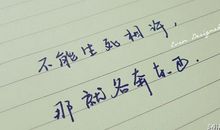 不能生死相许，
Even Designed
那就各奔东西